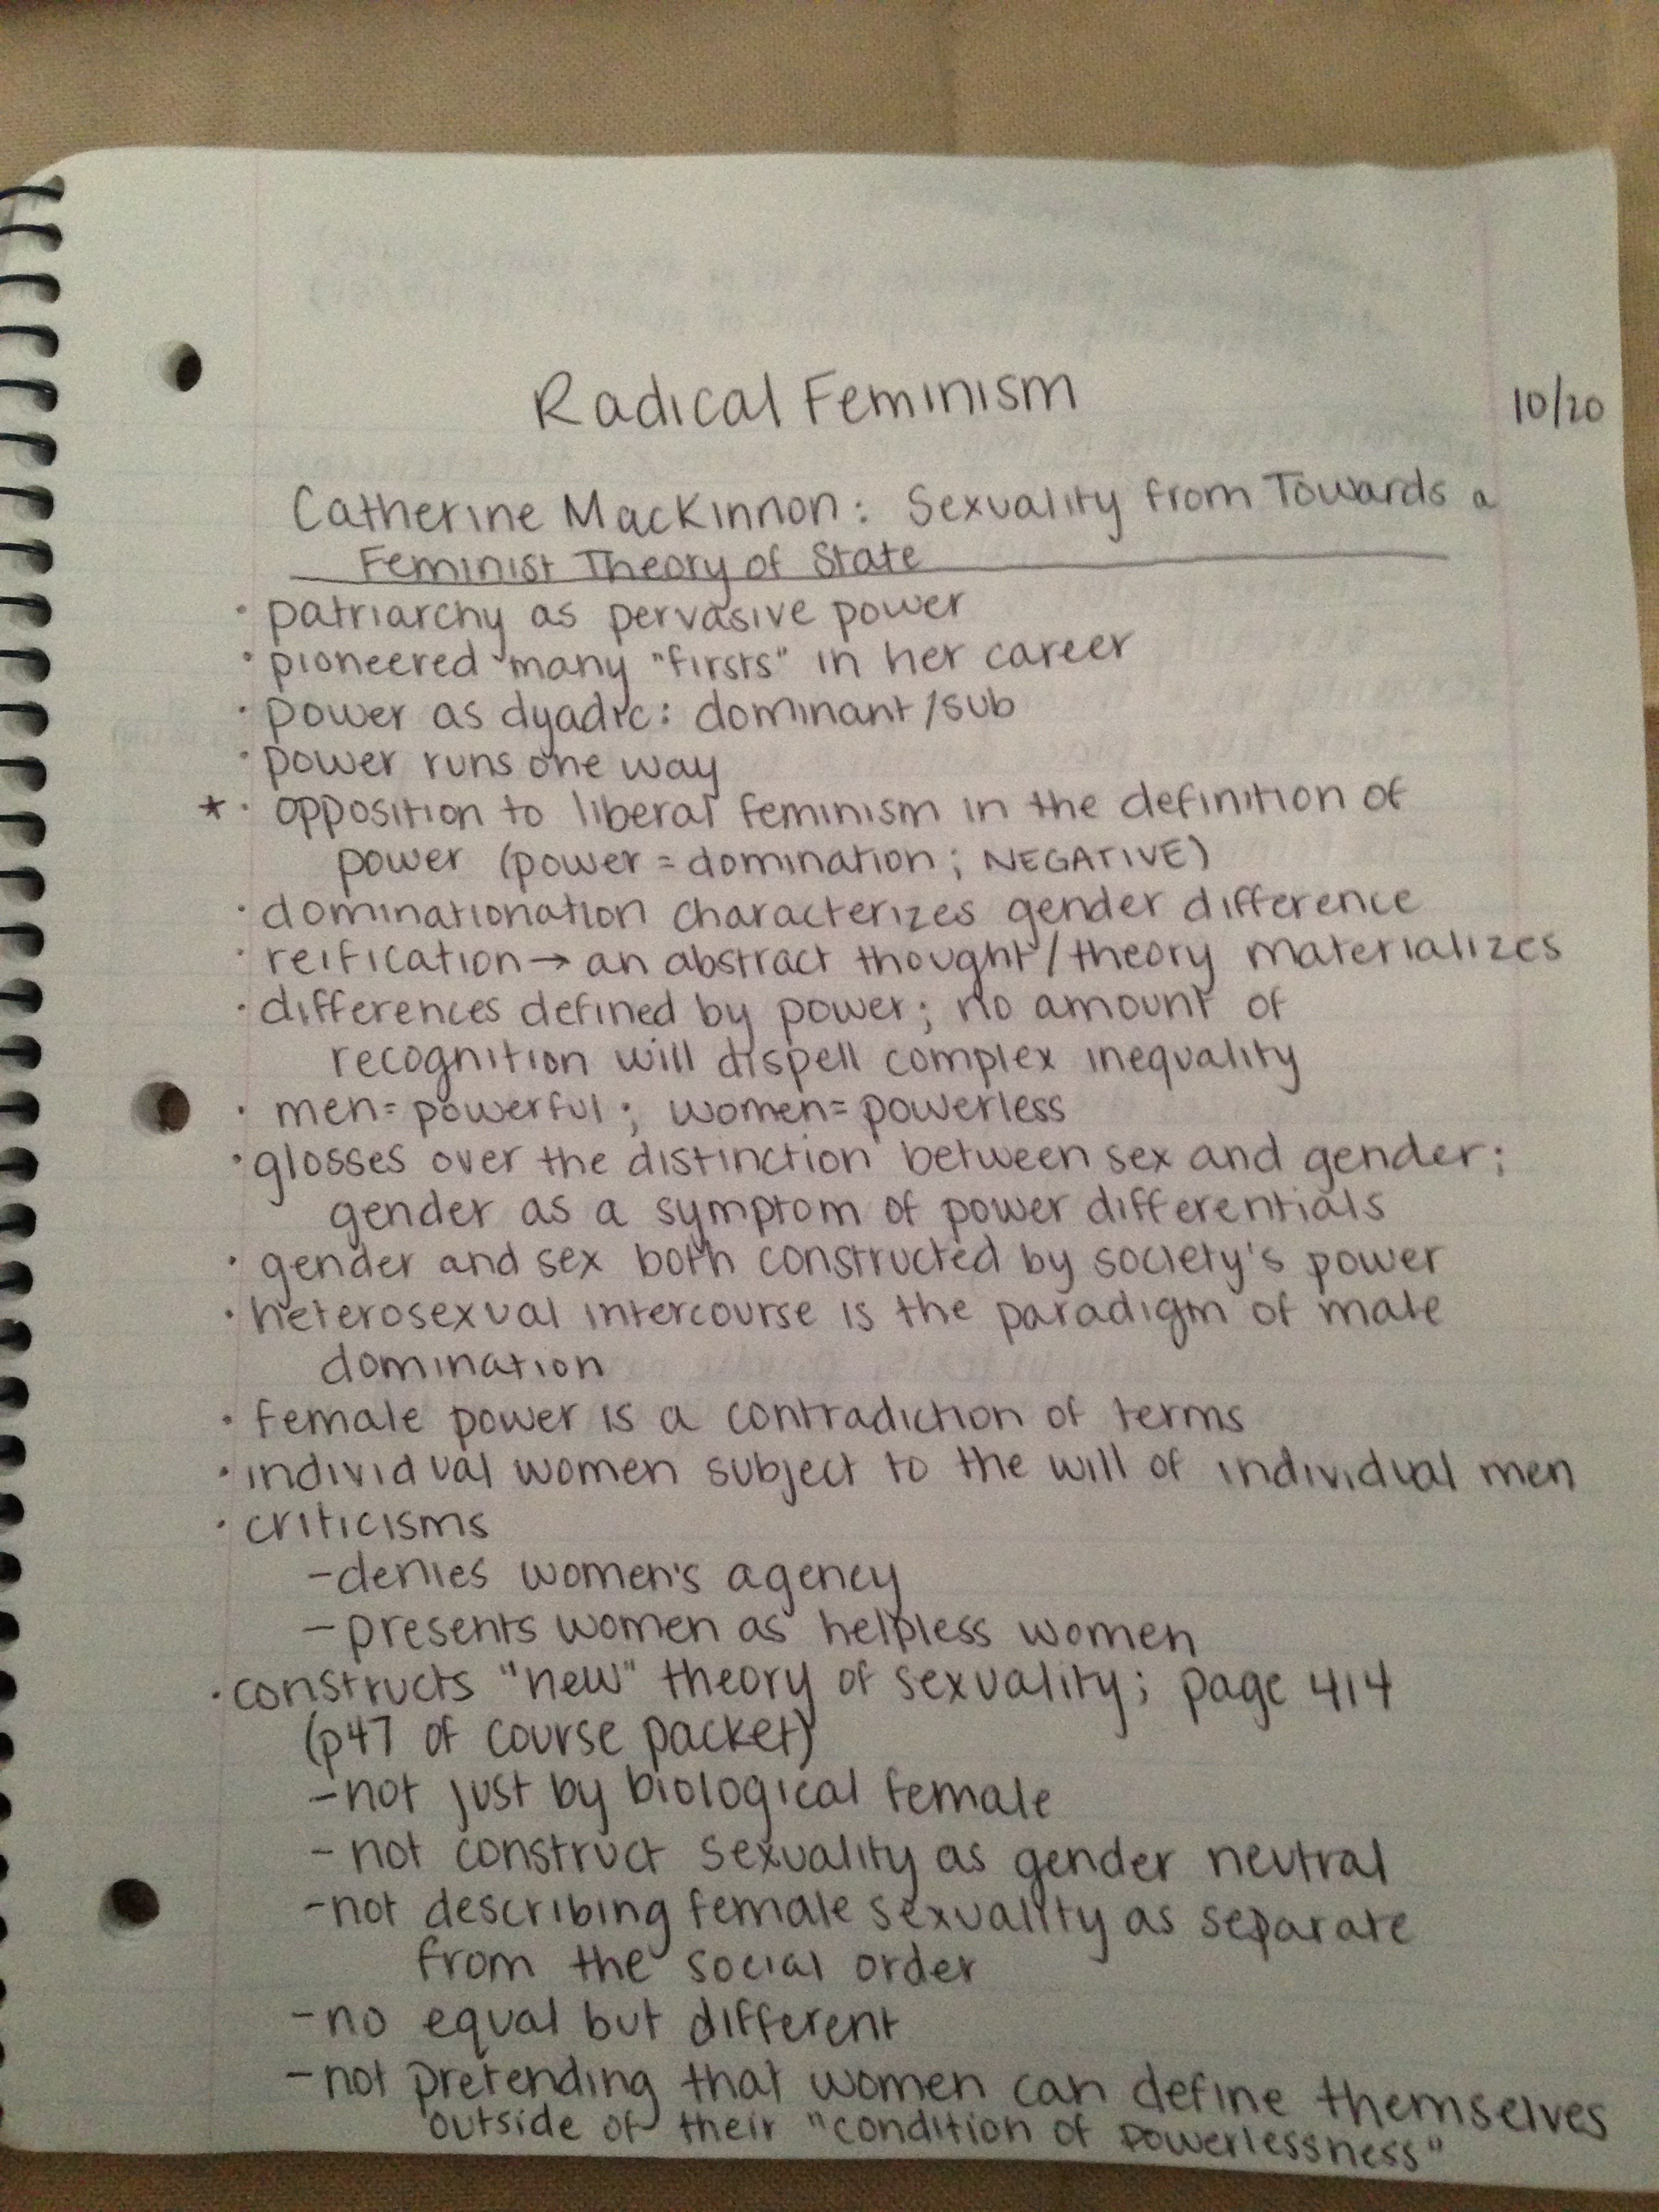 Radical Feminism
10/20
Catherine MacKinnon: Sexuality from Towards a
Feminist Theory of State
· patriarchy as pervasive power
· pioneered many "firsts" in her career
· power as dyadic: dominant/sub
· power runs one way
★· opposition to liberal feminism in the definition of
power (power = domination; NEGATIVE)
· dominationation characterizes gender difference
· reification → an abstract thought/theory materializes
· differences defined by power; no amount of
recognition will dispell complex inequality
· men = powerful; women = powerless
· glosses over the distinction between sex and gender;
gender as a symptom of power differentials
· gender and sex both constructed by society's power
· heterosexual intercourse is the paradigm of male
domination
· female power is a contradiction of terms
· individual women subject to the will of individual men
· criticisms
- denies women's agency
- presents women as helpless women
· constructs "new" theory of sexuality; page 414
(p47 of course packet)
- not just by biological female
- not construct sexuality as gender neutral
- not describing female sexuality as separate
from the social order
- no equal but different
- not pretending that women can define themselves
outside of their "condition of powerlessness"